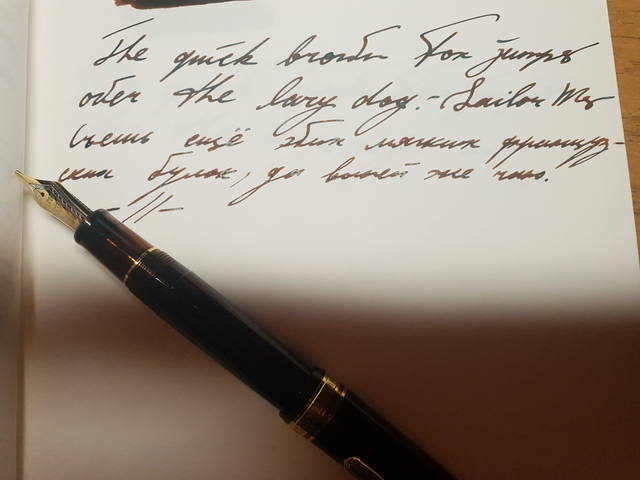 The quick brown Fox jumps
over the lazy dog. - Sailor Mg
Съешь ещё этих мягких француз-
ских булок, да выпей же чаю.
-//-